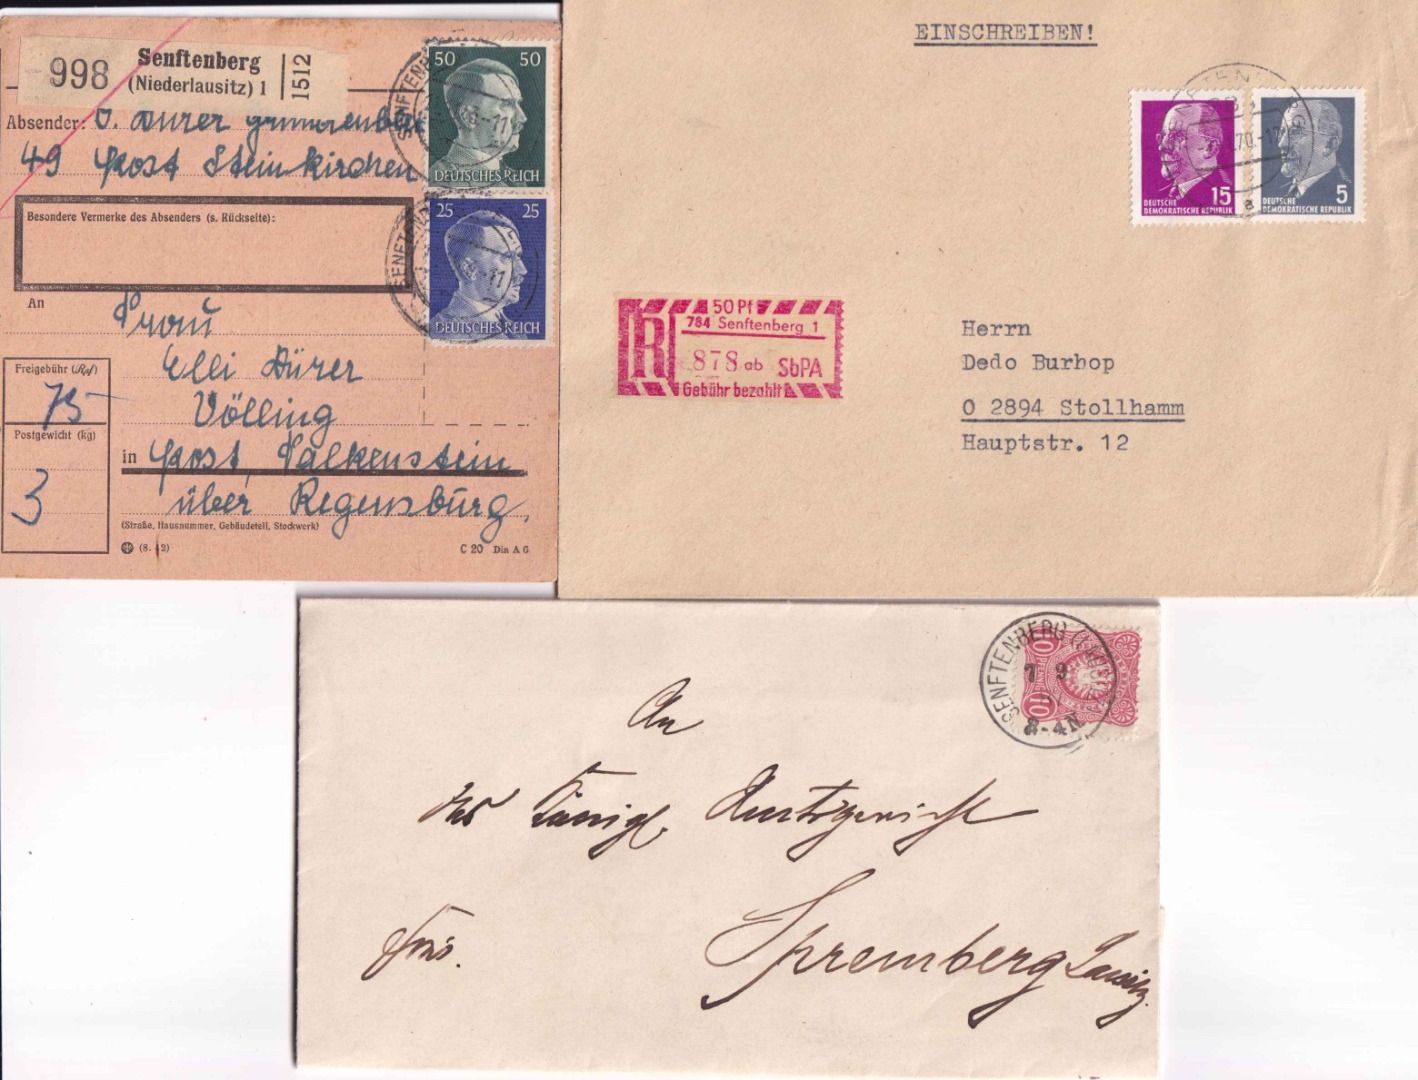 998
Senftenberg
(Niederlausitz) 1
1512
Absender:
49 Post Steinkirchen
Besondere Vermerke des Absenders (s. Rückseite):
An
Frau
Elli Dürer
Völling
in Post Falkenstein
über Regensburg,
(Straße, Hausnummer, Gebäudeteil, Stockwerk)
Freigebühr (Rpf)
75
Postgewicht (kg)
3
(8. 42)
C 20 Din A 6
50 50
DEUTSCHES REICH
25 25
DEUTSCHES REICH
EINSCHREIBEN!
15
DEUTSCHE
DEMOKRATISCHE REPUBLIK
5
DEUTSCHE
DEMOKRATISCHE REPUBLIK
50 Pf
784 Senftenberg 1
R
878 ab SbPA
Gebühr bezahlt
Herrn
Dedo Burhop
O 2894 Stollhamm
Hauptstr. 12
SENFTENBERG
7 9
8-4N
10 PFENNIG 10
An
das Königl. Amtsgericht
Spremberg Lausitz